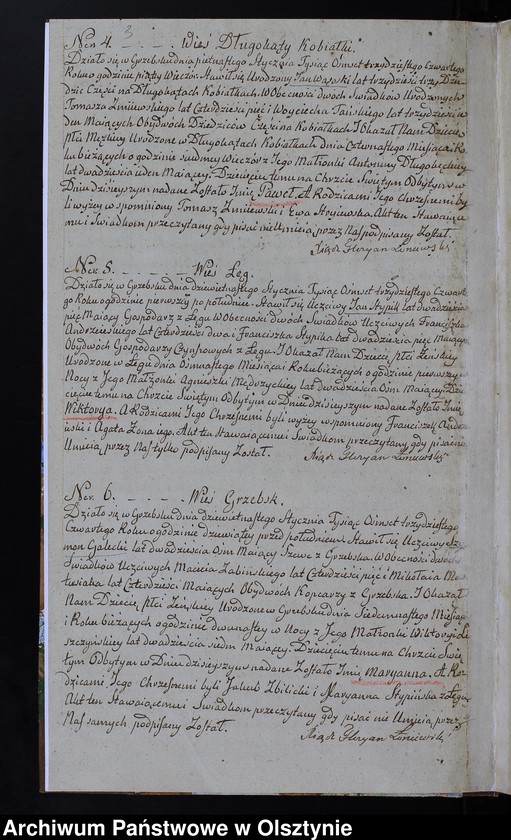 3
Nro 4. _ . _ . _ . Wieś Długokąty Kobiałki.
Działo się w Grzebsku dnia piętnastego Stycznia Tysiąc Osmset trzydziestego Czwartego
Roku o godzinie piąty Wieczór. Stawił się Urodzony Jan lat trzydzieści trzy Dzie-
dzic Części na Długokątach Kobiałkach, W Obecności dwóch Świadków Urodzonych
Tomasza Żmiiewskiego lat Czterdzieści pięć i Woyciecha lat trzydzieści ie-
den Maiących Obydwóch Dziedziców Części na Kobiałkach. I Okazał Nam Dziecie
płci Męzkiy Urodzone w Długokątach Kobiałkach dnia Czternastego Miesiąca i Ro-
ku bieżących o godzinie siódmey Wieczór z Jego Małżonki Antoniny Długołęckiey
lat dwadzieścia ieden Maiący. Dziecięciu temu na Chrzcie Świętym Odbytym w
Dniu dzisieyszym nadane Zostało Imię Paweł. A Rodzicami Jego chrzesnemi by-
li wyżey wspomniony Tomasz Żmiiewski i Ewa Akt ten Stawaiące-
mu i Świadkom przeczytany gdy pisać nieUmieią, przez Nas podpisany Został.
Xiądz Floryan Łoniewski
Nro 5. _ . _ . _ . Wieś Łeg.
Działo się w Grzebsku dnia dziewietnastego Stycznia Tysiąc Osmset trzydziestego Czwart-
ego Roku o godzinie pierwszey po południu. Stawił się Uczciwy Jan Stypik lat dwadzieścia
pięć Maiący Gospodarz z Łegu W Obecności dwóch Świadków Uczciwych Franciszka
Andrzeiewskiego lat Czterdzieści dwa i Franciszka Stypika lat dwadzieścia pięć Maiących
Obydwóch Gospodarzy Czynszowych z Łegu. I Okazał Nam Dziecie płci Żeńskiey
Urodzone w Łegu dnia Osmnastego Miesiąca i Roku bieżących o godzinie pierwszey w
Nocy z Jego Małżonki Agnieszki Mędrzyckiey lat dwadzieścia Osm Maiący. Dzie-
cięciu temu na Chrzcie Świętym Odbytym w Dniu dzisieyszym nadane Zostało Imię
Wiktorya. A Rodzicami Jego Chrzesnemi byli wyżey wspomniony Franciszek Andrze-
iewski i Agata Żona iego. Akt ten Stawaiącemu i Świadkom przeczytany, gdy pisać nie
Umieią, przez Nas tylko podpisany Został.
Xiądz Floryan Łoniewski
Nro. 6. _ . _ . _ . Wieś Grzebsk.
Działo się w Grzebsku dnia dziewietnastego Stycznia Tysiąc Osmset trzydziestego
Czwartego Roku o godzinie dziewiątey przed południem. Stawił się Uczciwy Szy-
mon Gałecki lat dwadzieścia Osm Maiący Szewc z Grzebska. W Obecności dwóch
Świadków Uczciwych Macieia Żabińskiego lat Czterdzieści pięć i Mikołaia
lat Czterdzieści Maiących Obydwóch Kopcarzy z Grzebska. I Okazał
Nam Dziecie płci Żeńskiey Urodzone w Grzebsku dnia Siedemnastego Miesiąca
i Roku bieżących o godzinie dwunastey w Nocy z Jego Małżonki Wiktoryi Le-
szczyńskiey lat dwadzieścia siedm Maiący. Dziecięciu temu na Chrzcie Świę-
tym Odbytym w Dniu dzisieyszym nadane Zostało Imię Maryanna. A Ro-
dzicami Jego Chrzesnemi byli Jakub Zbilicki i Maryanna Stypińska z Łegu
Akt ten Stawaiącemu i Świadkom przeczytany gdy pisać nie Umieią, przez
Nas samych podpisany Został.
Xiądz Floryan Łoniewski
Archiwum Państwowe w Olsztynie